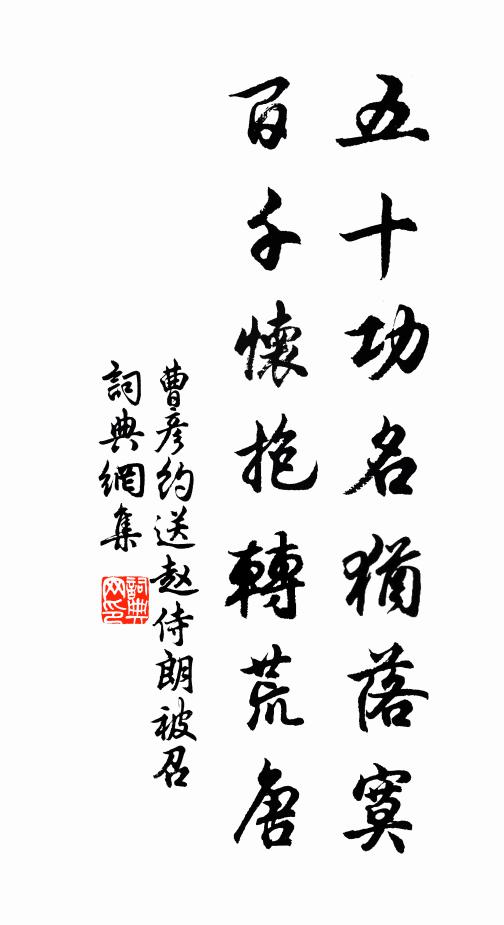 五十功名猶落寞
百千懷抱轉荒唐
曹彦約送赵侍朗被召
詞典網集
詞典網印